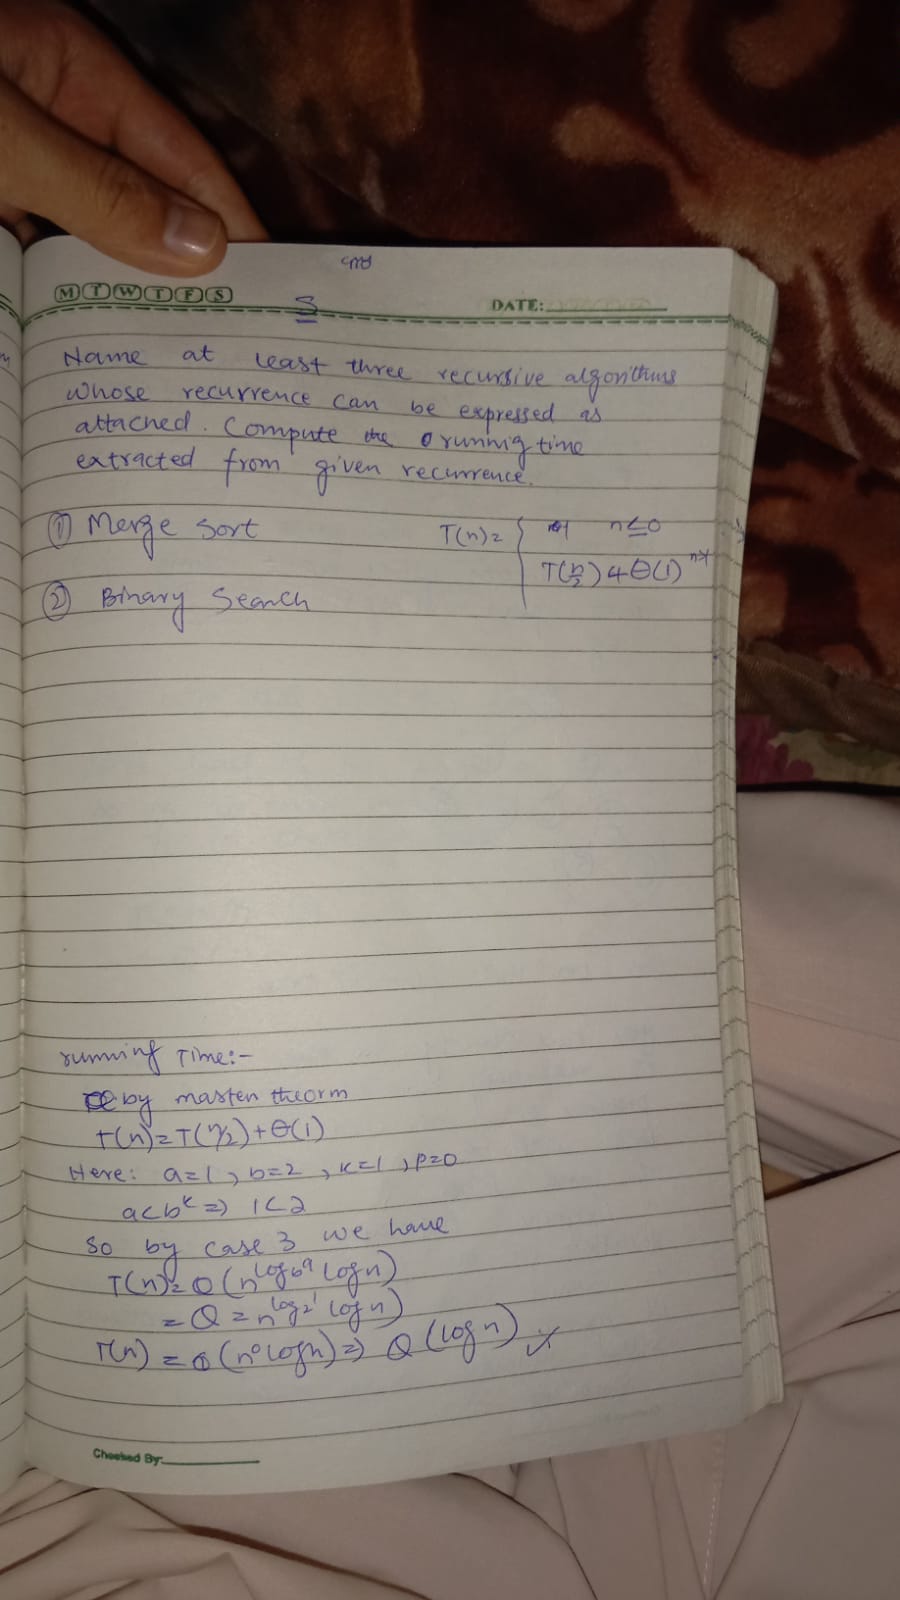 Ans
M T W T F S
5
DATE:
Name at least three recursive algorithms
whose recurrence can be expressed as
attached. Compute the running time
extracted from given recurrence.
① Merge Sort
T(n)= { n≤0
T(n/2)+Θ(1)
② Binary Search
running Time:-
by masten theorm
T(n)=T(n/2)+Θ(1)
Here: a=1, b=2, k=1, p=0
a<b^k => 1<2
So by case 3 we have
T(n)=Θ(n^log_b a log n)
=Θ=n^log_2 1 log n)
T(n)=Θ(n^0 log n)=>Θ(log n)
Checked By: